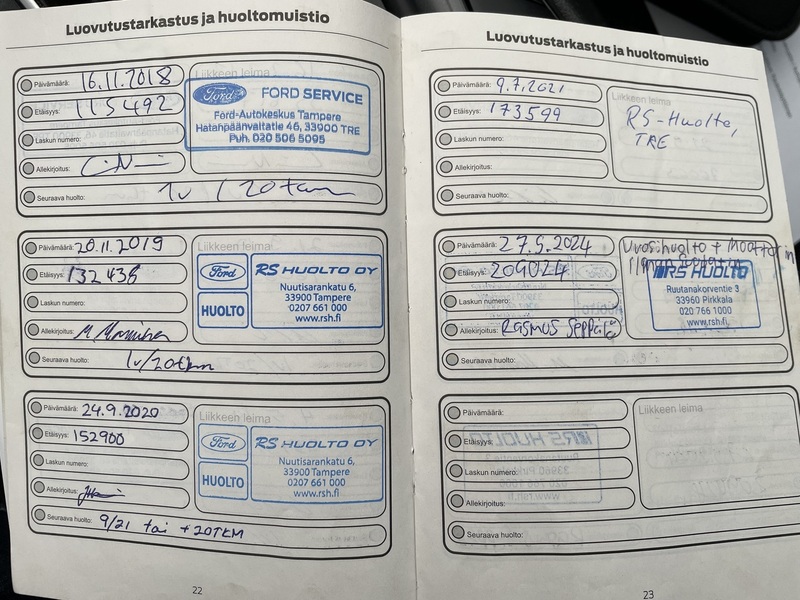 Luovutustarkastus ja huoltomuistio
Päivämäärä: 16.11.2018
Etäisyys: 115492
Laskun numero:
Allekirjoitus:
Seuraava huolto: 1v / 20tkm
Liikkeen leima
Ford FORD SERVICE
Ford-Autokeskus Tampere
Hatanpäänvaltatie 46, 33900 TRE
Puh. 020 506 5095
Päivämäärä: 20.11.2019
Etäisyys: 132438
Laskun numero:
Allekirjoitus:
Seuraava huolto: 1v/20tkm
Liikkeen leima
Ford RS HUOLTO OY
HUOLTO
Nuutisarankatu 6,
33900 Tampere
0207 661 000
www.rsh.fi
Päivämäärä: 24.9.2020
Etäisyys: 152900
Laskun numero:
Allekirjoitus:
Seuraava huolto: 9/21 tai +20TKM
Liikkeen leima
Ford RS HUOLTO OY
HUOLTO
Nuutisarankatu 6,
33900 Tampere
0207 661 000
www.rsh.fi
22
Luovutustarkastus ja huoltomuistio
Päivämäärä: 9.7.2021
Etäisyys: 173599
Laskun numero:
Allekirjoitus:
Seuraava huolto:
Liikkeen leima
RS-Huolto,
TRE
Päivämäärä: 27.5.2024
Etäisyys: 209024
Laskun numero:
Allekirjoitus: Rasmus Seppälä
Seuraava huolto:
Vuosihuolto + Moottorin
RS HUOLTO
Ruutanakorventie 3
33960 Pirkkala
020 766 1000
www.rsh.fi
Päivämäärä:
Etäisyys:
Laskun numero:
Allekirjoitus:
Seuraava huolto:
Liikkeen leima
23